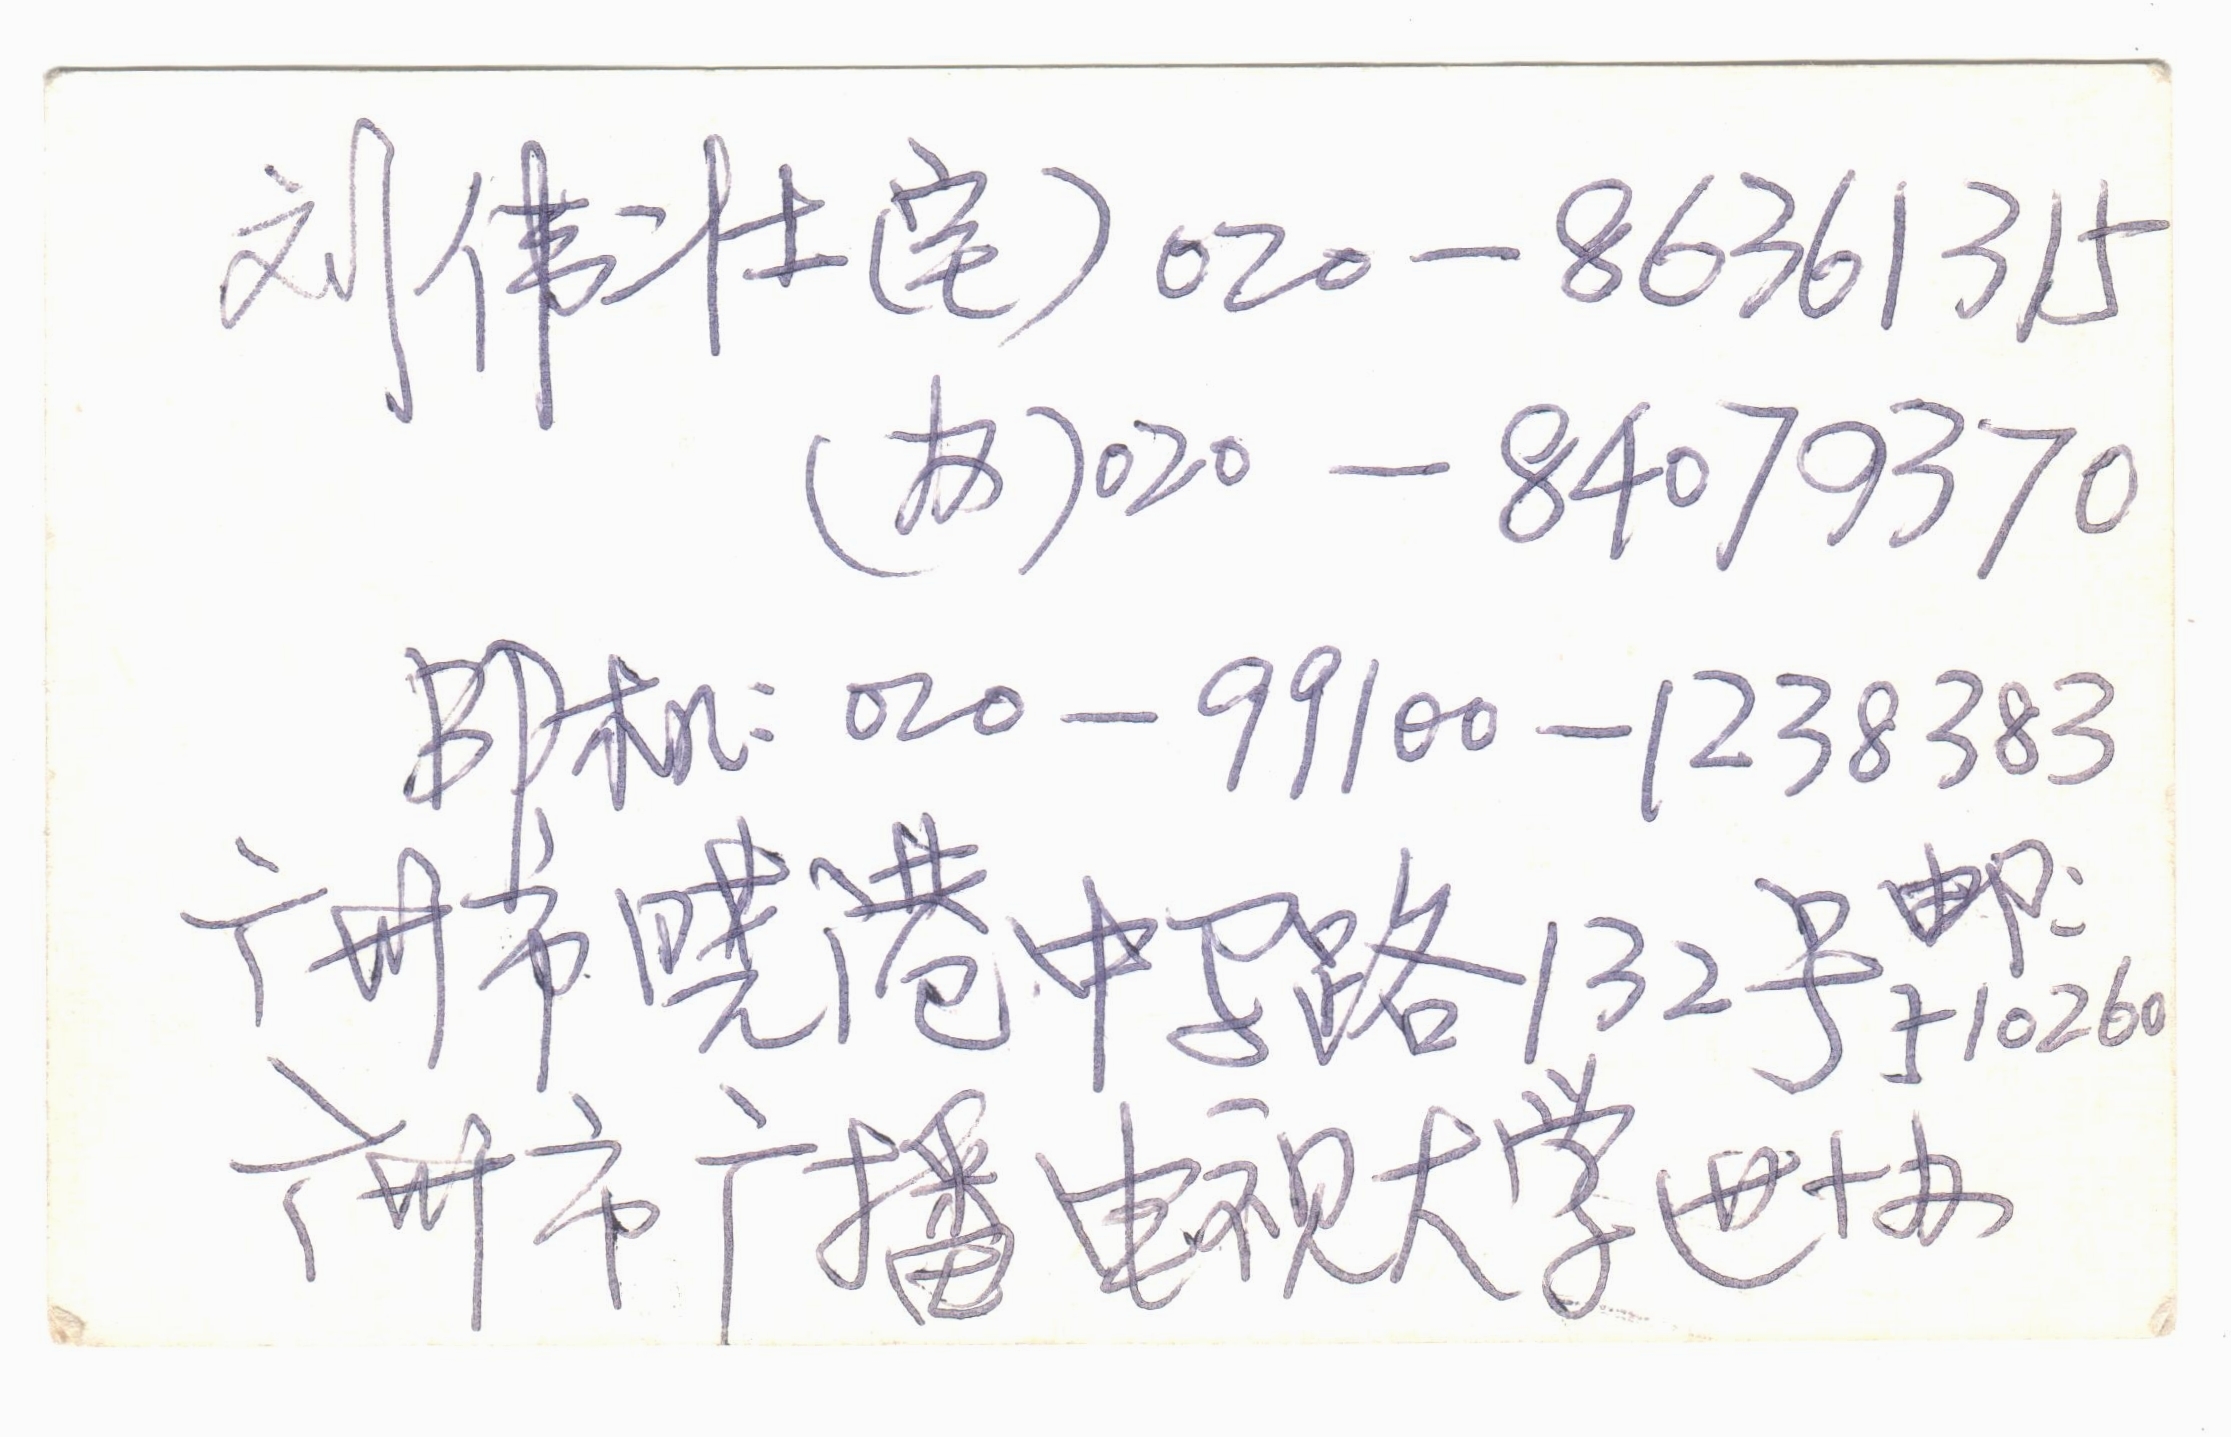 刘伟壮(宅)020-86361315
(办)020-84079370
BP机:020-99100-1238383
广州市晓港中马路132号 邮:510260
广州市广播电视大学进协